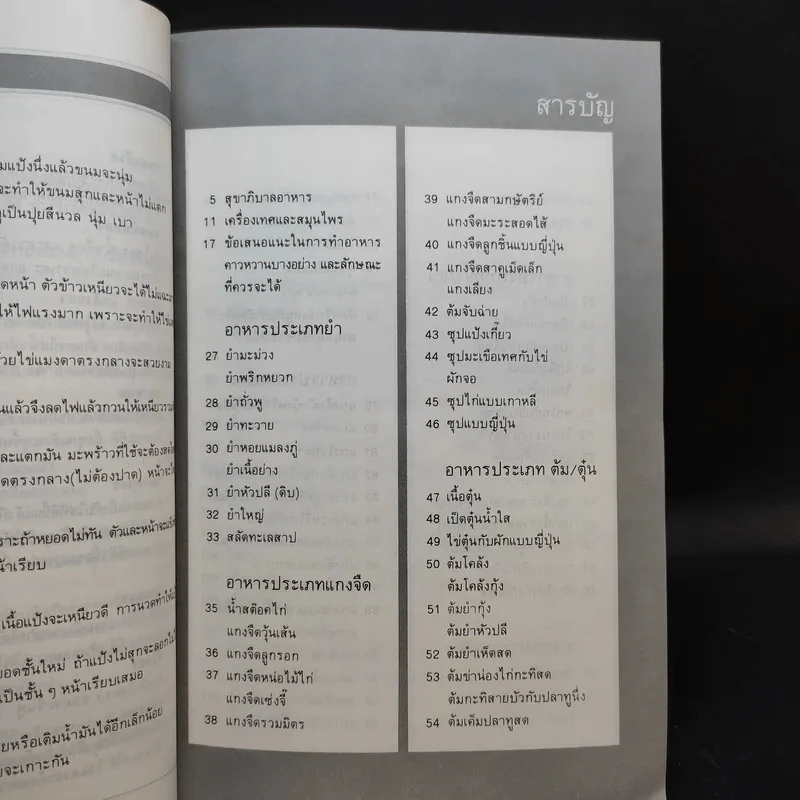 มแป้งนึ่งแล้วขนมจะนุ่ม
จะทำให้ขนมสุกและหน้าไม่แตก
เป็นปุยสีนวล นุ่ม เบา
ดหน้า ตัวข้าวเหนียวจะได้ไม่แฉะ
ให้ไฟแรงมาก เพราะจะทำให้ไข่
ด้วยไข่แมงดาตรงกลางจะสวยงาม
นแล้วจึงลดไฟแล้วกวนให้เหนียว
ละแตกมัน มะพร้าวที่ใช้จะต้อง
ดตรงกลาง(ไม่ต้องปาด) หน้าจะ
ราะถ้าหยอดไม่ทัน ตัวและหน้าจะ
น้าเรียบ
เนื้อแป้งจะเหนียวดี การนวดทำให้
ยอดชั้นใหม่ ถ้าแป้งไม่สุกจะลอก
เป็นชั้น ๆ หน้าเรียบเสมอ
ยหรือเติมน้ำมันได้อีกเล็กน้อย
จะเกาะกัน
สารบัญ
5 สุขาภิบาลอาหาร
11 เครื่องเทศและสมุนไพร
17 ข้อเสนอแนะในการทำอาหาร
คาวหวานบางอย่าง และลักษณะ
ที่ควรจะได้
อาหารประเภทยำ
27 ยำมะม่วง
ยำพริกหยวก
28 ยำถั่วพู
29 ยำทะวาย
30 ยำหอยแมลงภู่
ยำเนื้อย่าง
31 ยำหัวปลี (ดิบ)
32 ยำใหญ่
33 สลัดทะเลสาป
อาหารประเภทแกงจืด
35 น้ำสต๊อคไก่
แกงจืดวุ้นเส้น
36 แกงจืดลูกรอก
37 แกงจืดหน่อไม้ไก่
แกงจืดเซ่งจี๊
38 แกงจืดรวมมิตร
39 แกงจืดสามกษัตริย์
แกงจืดมะระสอดไส้
40 แกงจืดลูกชิ้นแบบญี่ปุ่น
41 แกงจืดสาคูเม็ดเล็ก
แกงเลียง
42 ต้มจับฉ่าย
43 ซุปแป้งเกี๊ยว
44 ซุปมะเขือเทศกับไข่
ผักจอ
45 ซุปไก่แบบเกาหลี
46 ซุปแบบญี่ปุ่น
อาหารประเภท ต้ม/ตุ๋น
47 เนื้อตุ๋น
48 เป็ดตุ๋นน้ำใส
49 ไข่ตุ๋นกับผักแบบญี่ปุ่น
50 ต้มโคล้ง
ต้มโคล้งกุ้ง
51 ต้มยำกุ้ง
ต้มยำหัวปลี
52 ต้มยำเห็ดสด
53 ต้มข่าน่องไก่กะทิสด
ต้มกะทิสายบัวกับปลาทูนึ่ง
54 ต้มเค็มปลาทูสด